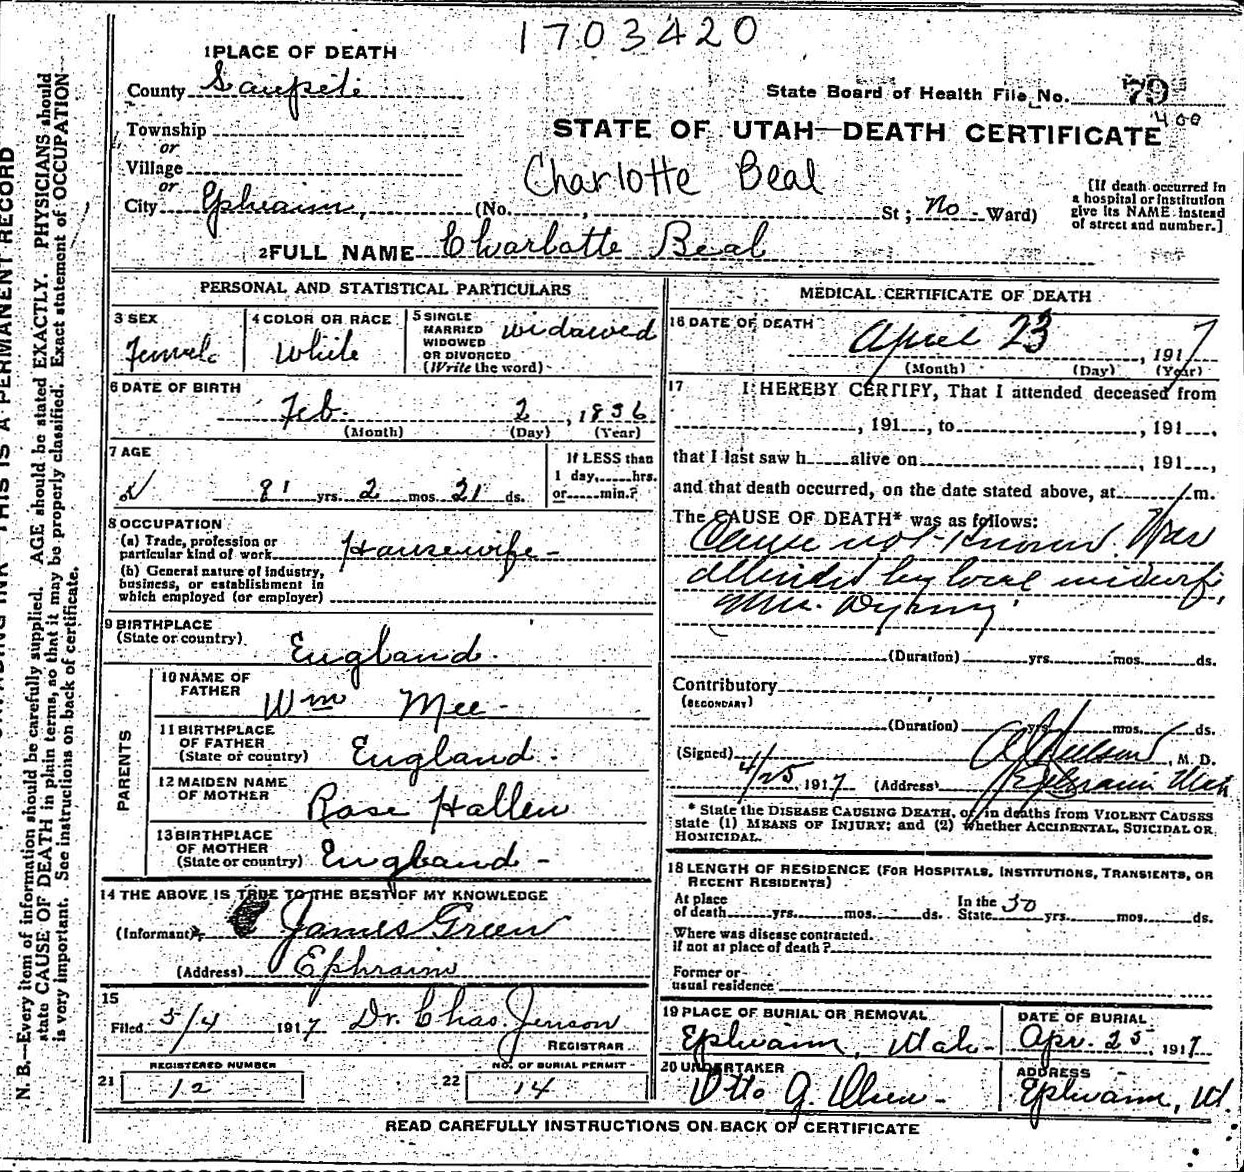 1703420
1 PLACE OF DEATH
County Sanpete
State Board of Health File No. 79
400
Township
or
STATE OF UTAH—DEATH CERTIFICATE
Village
or
Charlotte Beal
City Ephraim, (No. , St; No - Ward)
[If death occurred in
a hospital or institution
give its NAME instead
of street and number.]
2 FULL NAME Charlotte Beal
PERSONAL AND STATISTICAL PARTICULARS
3 SEX
Female
4 COLOR OR RACE
White
5 SINGLE
MARRIED
WIDOWED
OR DIVORCED
(Write the word)
widowed
6 DATE OF BIRTH
Feb. 2, 1836
(Month) (Day) (Year)
7 AGE
81 yrs. 2 mos. 21 ds.
If LESS than
1 day, hrs.
or min.?
8 OCCUPATION
(a) Trade, profession or
particular kind of work Housewife -
(b) General nature of industry,
business, or establishment in
which employed (or employer)
9 BIRTHPLACE
(State or country) England.
PARENTS
10 NAME OF
FATHER
Wm Mee -
11 BIRTHPLACE
OF FATHER
(State or country) England.
12 MAIDEN NAME
OF MOTHER
Rose Hallen
13 BIRTHPLACE
OF MOTHER
(State or country) England -
14 THE ABOVE IS TRUE TO THE BEST OF MY KNOWLEDGE
(Informant) James Green
(Address) Ephraim
15
Filed 5/4 1917 Dr. Chas Jenson
REGISTRAR
REGISTERED NUMBER
21 12
NO. OF BURIAL PERMIT
22 14
MEDICAL CERTIFICATE OF DEATH
16 DATE OF DEATH
April 23, 1917
(Month) (Day) (Year)
17 I HEREBY CERTIFY, That I attended deceased from
, 191 , to , 191 ,
that I last saw h alive on , 191 ,
and that death occurred, on the date stated above, at m.
The CAUSE OF DEATH* was as follows:
Cause not known. Was
attended by local midwife,
Mrs.
(Duration) yrs. mos. ds.
Contributory
(SECONDARY)
(Duration) yrs. mos. ds.
(Signed) , M. D.
4/25, 1917 (Address) Ephraim Utah
* State the DISEASE CAUSING DEATH, or, in deaths from VIOLENT CAUSES
state (1) MEANS OF INJURY; and (2) whether ACCIDENTAL, SUICIDAL OR
HOMICIDAL.
18 LENGTH OF RESIDENCE (FOR HOSPITALS, INSTITUTIONS, TRANSIENTS, OR
RECENT RESIDENTS)
At place
of death yrs. mos. ds.
In the
State 50 yrs. mos. ds.
Where was disease contracted.
if not at place of death?
Former or
usual residence
19 PLACE OF BURIAL OR REMOVAL
Ephraim, Utah -
DATE OF BURIAL
Apr. 25, 1917
20 UNDERTAKER
Otto G. Olsen -
ADDRESS
Ephraim, Ut.
READ CAREFULLY INSTRUCTIONS ON BACK OF CERTIFICATE
THIS IS A PERMANENT RECORD
N. B.—Every item of information should be carefully supplied. AGE should be stated EXACTLY. PHYSICIANS should
state CAUSE OF DEATH in plain terms, so that it may be properly classified. Exact statement of OCCUPATION
is very important. See instructions on back of certificate.